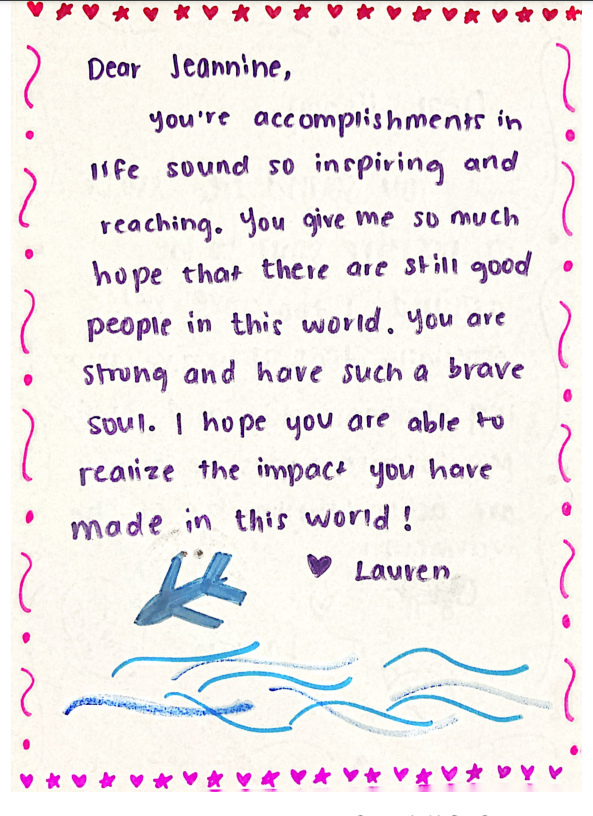 Dear Jeannine,
you're accomplishments in
life sound so inspiring and
reaching. You give me so much
hope that there are still good
people in this world. You are
strong and have such a brave
soul. I hope you are able to
realize the impact you have
made in this world!
♥ Lauren